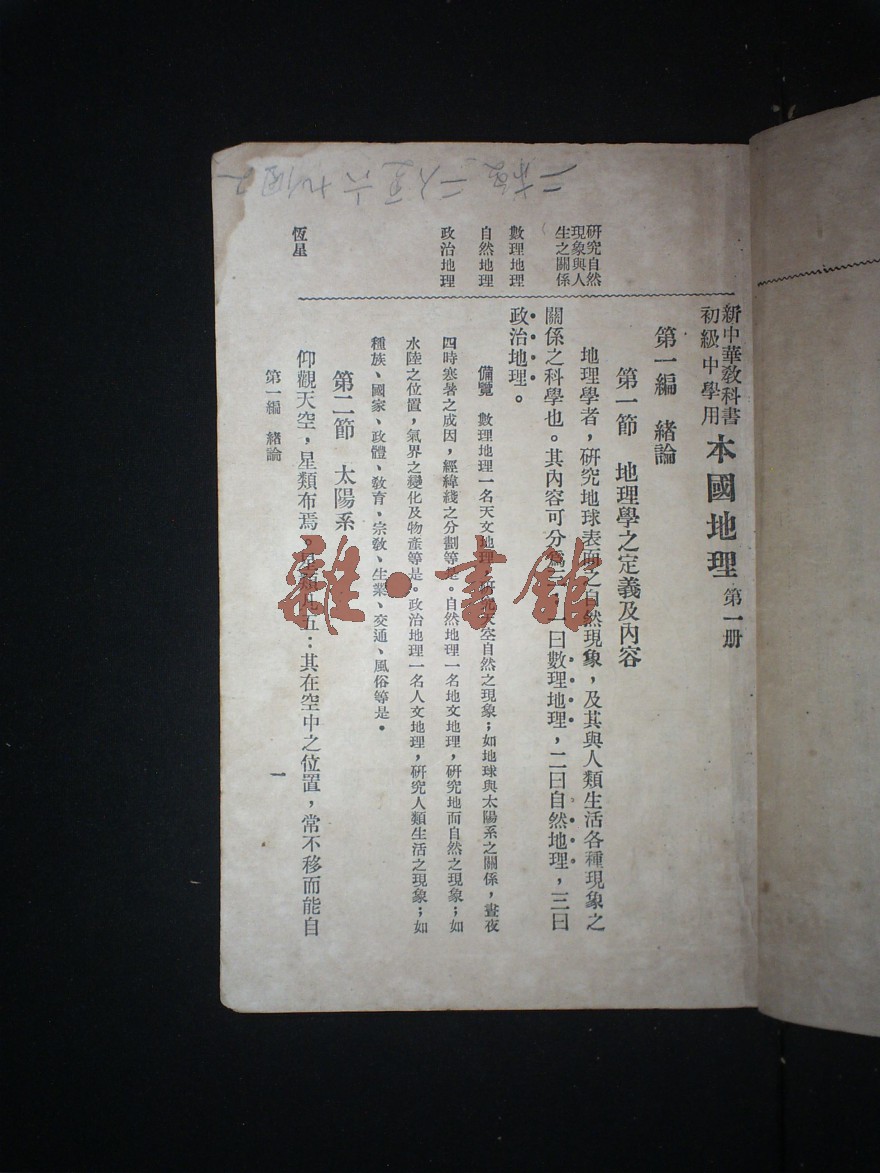 新中華教科書
初級中學用
本國地理 第一册
第一編 緒論
第一節 地理學之定義及內容
研究自然
現象與人
生之關係
地理學者，研究地球表面之自然現象，及其與人類生活各種現象之
關係之科學也。其內容可分爲三，一曰數理地理，二曰自然地理，三曰
政治地理。
數理地理
自然地理
政治地理
備覽 數理地理一名天文地理，研究天空自然之現象；如地球與太陽系之關係，晝夜
四時寒暑之成因，經緯綫之分劃等是。自然地理一名地文地理，研究地面自然之現象；如
水陸之位置，氣界之變化及物產等是。政治地理一名人文地理，研究人類生活之現象；如
種族、國家、政體、教育、宗教、生業、交通、風俗等是。
第二節 太陽系
恆星
仰觀天空，星類布焉。星類凡五：其在空中之位置，常不移而能自
第一編 緒論
一
雜·書館